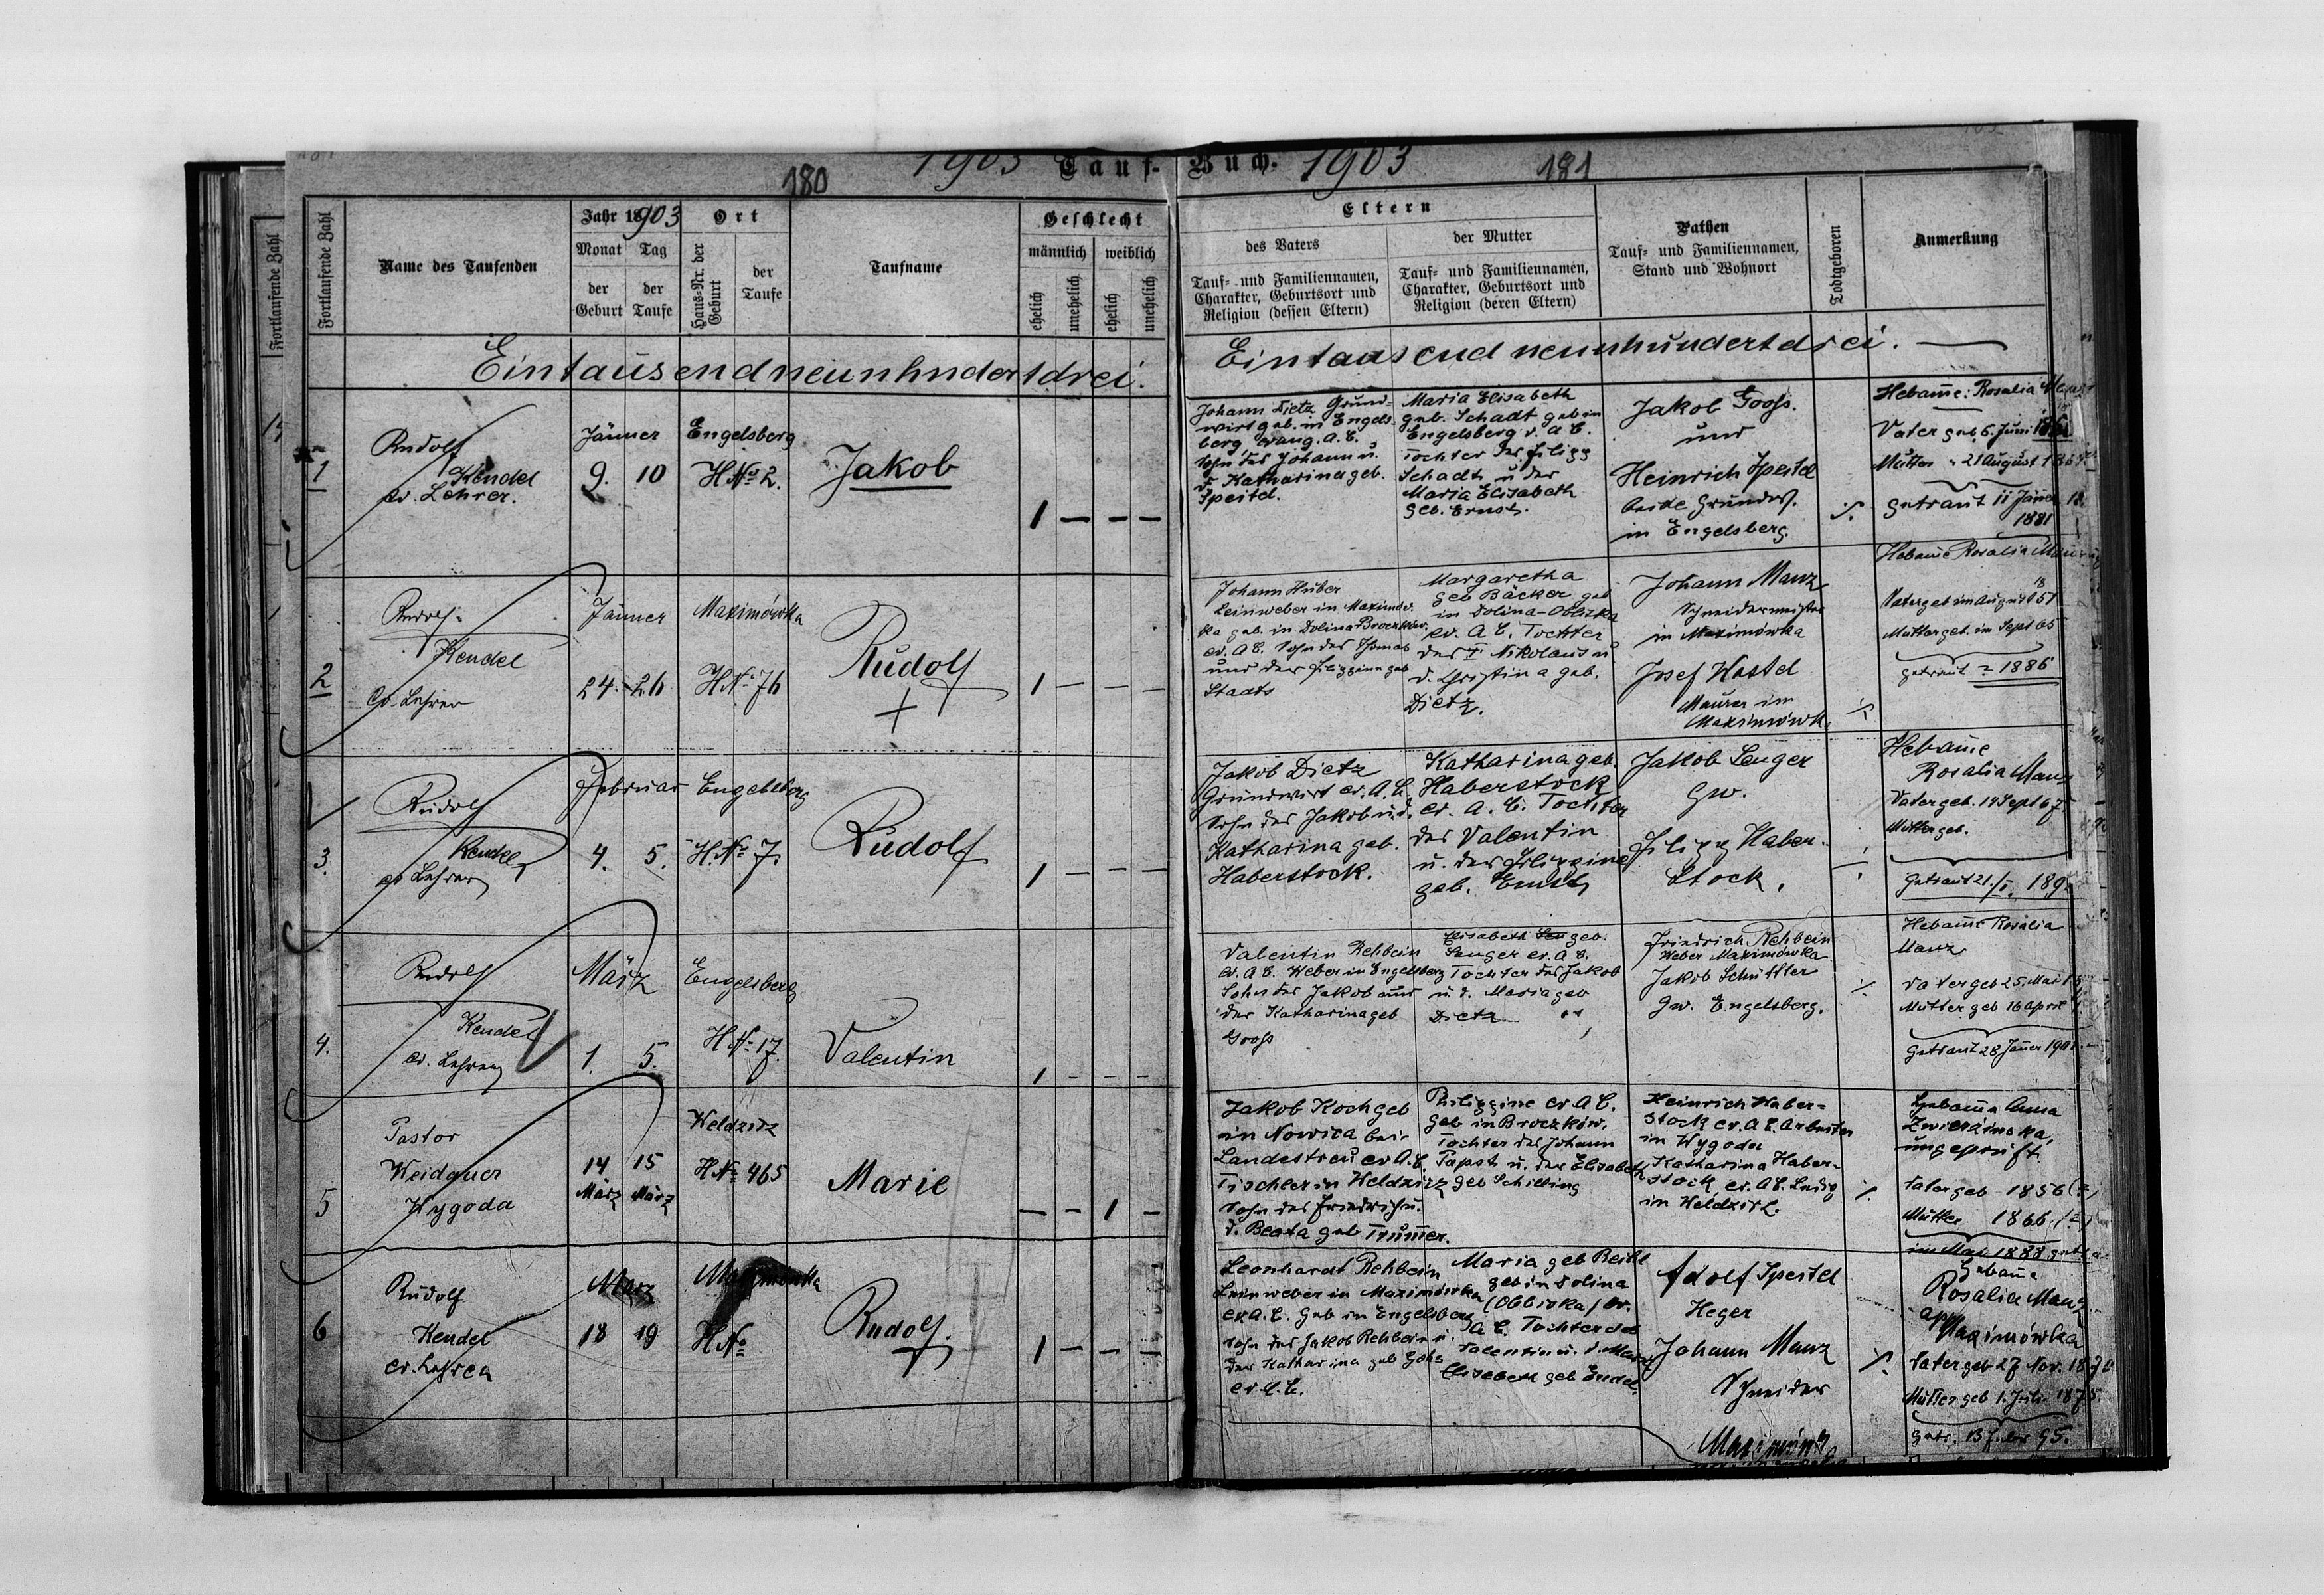 1903 Tauf- Buch. 1903
180
181
Fortlaufende Zahl
Fortlaufende Zahl
Name des Taufenden
Jahr 18903
Monat Tag
der Geburt
der Taufe
Ort
Haus-Nr. der Geburt
der Taufe
Taufname
Geschlecht
männlich weiblich
ehelich
unehelich
ehelich
unehelich
Eltern
des Vaters
Tauf- und Familiennamen,
Charakter, Geburtsort und
Religion (dessen Eltern)
der Mutter
Tauf- und Familiennamen,
Charakter, Geburtsort und
Religion (deren Eltern)
Pathen
Tauf- und Familiennamen,
Stand und Wohnort
Todtgeboren
Anmerkung
Eintausendneunhndertdrei.
Eintausend neunhundertdrei. —
1
Rudolf
Kendel
ev. Lehrer.
Jänner
9. 10
Engelsberg
H№ 2.
Jakob
1 — — —
Johann Dietz Grund-
wirt geb. in Engels-
berg evang. A. C.
Sohn des Johann u.
d. Katharina geb.
Speitel.
Maria Elisabeth
geb. Schadt geb in
Engelsberg v. A C.
Tochter des Filipp
Schadt u der
Maria Elisabeth
geb. Ernst.
Jakob Gooss.
und
Heinrich Speitel
beide Grundw.
in Engelsberg.
Hebame: Rosalia
Vater geb. 6. Juni
Mutter " 21 August
getraut 11 Jäner
1881
2
Rudolf
Kendel
Ev. Lehrer
Jänner
24. 26
Maximówka
H№ 76
Rudolf
+
1 — — —
Johann Huber
Leinweber in Maximów-
ka geb. in Dolina Broczków.
ev. A C. Sohn des Thomas
und der Filippina geb
Staats
Margaretha
geb Bäcker geb
in Dolina-Obliska
ev. A C. Tochter
des Nikolaus u
d. Christina geb.
Dietz.
Johann Manz
Schneidermeister
in Maximówka
Josef Hostel
Maurer im
Maximówk.
Hebame Rosalia
Vater geb im August
Mutter geb. im Sept 65
getraut 1886
3.
Rudolf
Kendel
ev Lehrer
Februar
4. 5.
Engelsberg
H.№ 7.
Rudolf
1 — — —
Jakob Dietz
Grundwirt ev. A. C.
Sohn des Jakob u. d.
Katharina geb.
Haberstock.
Katharina geb.
Haberstock
ev. A. C. Tochter
des Valentin
u. der Filippine
geb. Ernst
Jakob Senger
Gw.
Filipp Haber-
stock.
Hebame
Rosalia Manz
Vater geb. 14 Sept 67.
Mutter geb.
Getraut 21./I. 189
4.
Rudolf
Kendel
ev. Lehrer
März
1. 5.
Engelsberg
H.№ 17.
Valentin
1 - - -
Valentin Rehbein
ev. A C. Weber in Engelsberg
Sohn des Jakob und
der Katharina geb
Gooss
Elisabeth Sen geb.
Senger ev. A C.
Tochter des Jakob
u. d. Maria geb
Dietz
Friedrich Rehbein
Weber Maximówka
Jakob Schüttler
Gw. Engelsberg.
Hebame Rosalia
Manz
Vater geb 25. Mai
Mutter geb 16 April
Getraut 28 Jäner
5
Pastor
Weidauer
Wygoda
14 15
März März
Weldzirz
H№ 465
Marie
— — 1 —
Jakob Koch geb
in Nowica bei
Landestreu ev A. C.
Tischler in Weldzirz
Sohn des Friedrich u.
d. Beata geb Trummer.
Philippine ev A C.
geb in Broczków.
Tochter des Johann
Papst u. der Elisabeth
geb Schilling
Heinrich Haber-
stock ev. A C. Arbeiter
in Wygoda
Katharina Haber-
stock ev. A C. Ledig
in Weldzirz.
Hebame Anna
ungeprüft.
Vater geb 1856 (?)
Mutter 1866 (?)
im Mai 1888 getra
6
Rudolf
Kendel
ev. Lehrer
März
18 19
Maximówka
H№
Rudolf.
1 — — —
Leonhardt Rehbein
Leinweber in Maximówka
ev A. C. geb in Engelsberg
Sohn des Jakob Rehbein u.
der Katharina geb Gohs
ev A. C.
Maria geb Reichl
geb in Dolina
(Obliska) ev.
A C. Tochter des
Valentin u. d. Maria
Elisabeth geb Endel.
Adolf Speitel
Heger
Johann Manz
Schneider
Hebame
Rosalia Manz
Maximówka
Vater geb 27 Nov. 1870
Mutter geb 1. Juli 1875.
getr. 95.